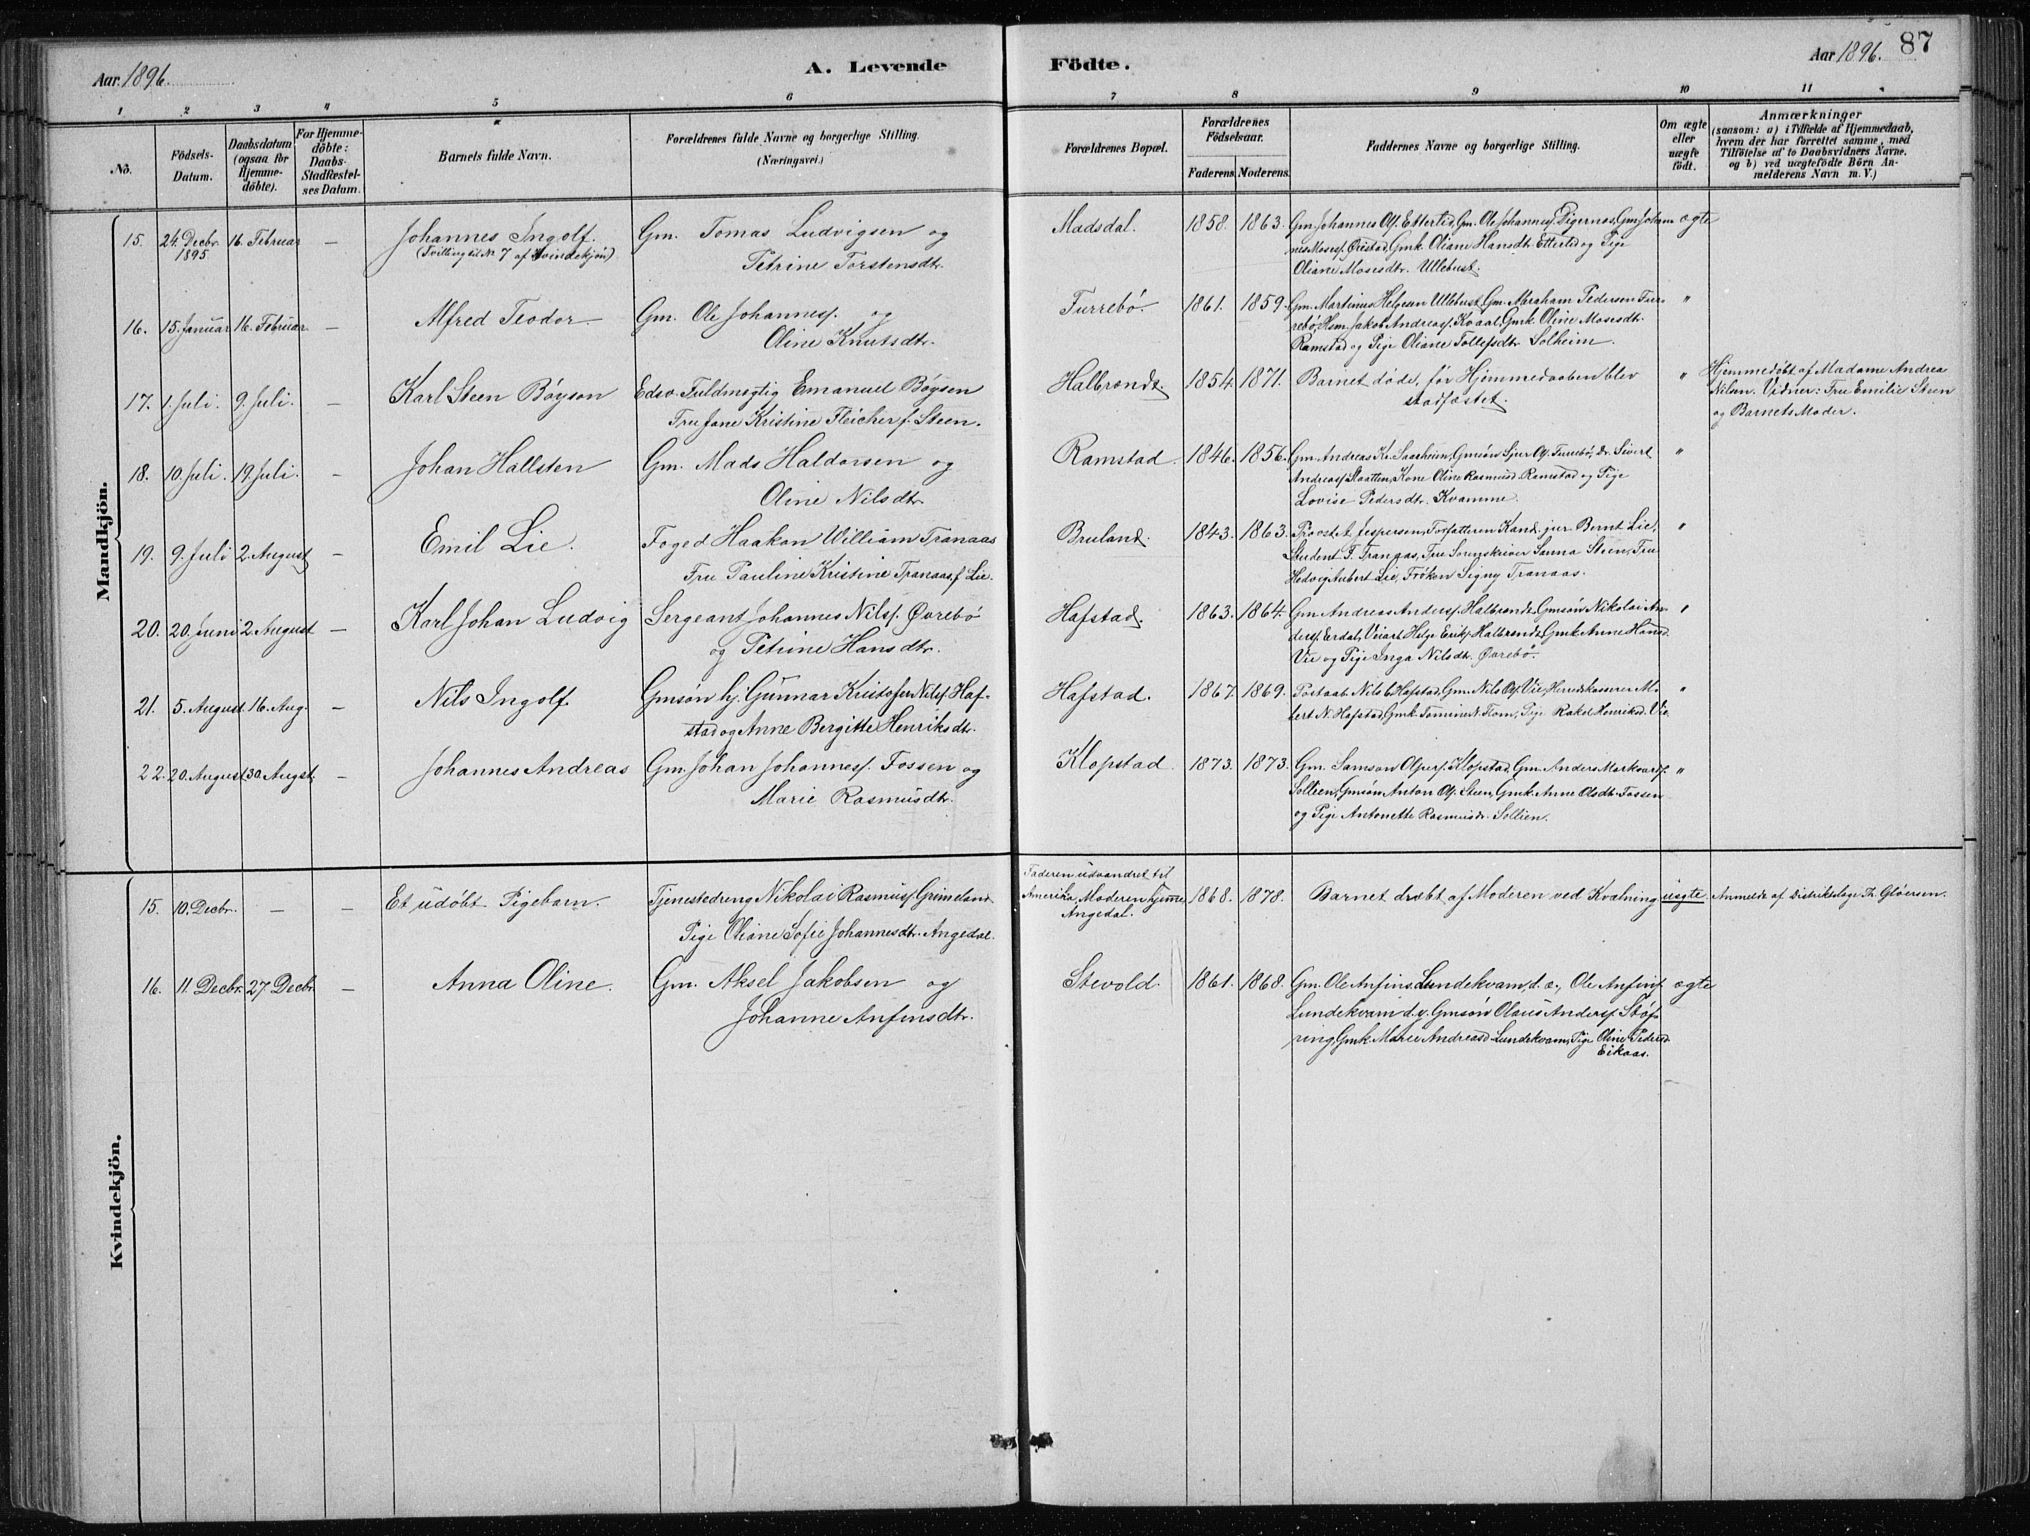 Aar 1896.
A. Levende
Födte.
Aar 1896.
87
1 2 3 4 5 6 7 8 9 10 11
No.
Födsels-
Datum.
Daabsdatum
(ogsaa for
Hjemme-
döbte).
For Hjemme-
döbte:
Daabs-
Stadfæstel-
ses Datum.
Barnets fulde Navn.
Forældrenes fulde Navne og borgerlige Stilling.
(Næringsvei.)
Forældrenes Bopæl.
Forældrenes
Födselsaar.
Faderens. Moderens.
Faddernes Navne og borgerlige Stilling.
Om ægte
eller
uægte
födt.
Anmærkninger
(saasom: a) i Tilfælde af Hjemmedaab,
hvem der har forrettet samme, med
Tilföielse af to Daabsvidners Navne.
og b) ved uægtefödte Börn An-
melderens Navn m. V.)
Mandkjön.
15. 24. Decbr. 16. Februar — Johannes Ingolf. Gm. Tomas Ludvigsen og Madsdal. 1858. 1863. Gm. Johannes Ols. Ettertid, Gm. Ole Johanness. Digernæs, Gm. Johan- ægte
1895 (Tvilling til No 7 af Kvindekjön) Petrine Torstensdtr. nes Moses. Örestad, Gmk. Oliane Hansdtr. Ettertid og Pige
Oliane Mosesdtr. Ullebust.
16. 15. Januar 16. Februar — Alfred Teodor. Gm. Ole Johanness. og Furrebö. 1861. 1859. Gm. Martinus Helgesen Ullebust, Gm. Abraham Pedersen Fur- "
Oline Knutsdtr. rebö, Hsm. Jakob Andreass. Kvaal, Gmk. Oline Mosesdtr.
Ramstad og Pige Oliane Tollefsdtr. Solheim.
17. 1. Juli. 9. Juli. — Karl Steen Böyson Edsv. Fuldmægtig Emanuel Böysen Halbrendt. 1854. 1871. Barnet döde, för Hjemmedaaben blev " Hjemmedöbt af Madame Andrea
Fru Jane Kristine Fleicher f. Steen. stadfæstet. Nilsen. Vidner: Fru Emilie Steen
og Barnets Moder.
18. 10. Juli. 19. Juli. — Johan Hallsten Gm. Mads Haldorsen og Ramstad. 1846. 1856. Gm. Andreas Kr. Saxheim, Gmsön Sjur Ols. Furrebö, Dr. Sivert "
Oline Nilsdtr. Andreass. Slaatten, Kone Oline Rasmusd. Ramstad og Pige
Lovise Pedersdtr. Kvamme.
19. 9. Juli 2. August — Emil Lie. Foged Haakon William Tranaas Bruland. 1843. 1863. Provst A. Jespersen, Forfatteren Kand. jur. Bernt Lie, "
Fru Pauline Kristine Tranaas, f. Lie. Student F. Tranaas, Fru Sorenskriver Sanna Steen, Fru
Hedvig Aubert Lie, Fröken Signy Tranaas.
20. 20. Juni 2. August — Karl Johan Ludvig Sergeant Johannes Nilss. Övrebö Hafstad. 1863. 1864. Gm. Andreas Anders. Halbrendt, Gmsön Nikolai An- "
og Petrine Hansdtr. ders. Erdal, Helge Eriks. Halbrendt, Gmk. Anne Hansd.
Vie og Pige Inga Nilsdtr. Övrebö.
21. 5. August 16. Aug. — Nils Ingolf. Gmsön hj. Gunnar Kristofer Nilss. Haf- Hafstad. 1867. 1869. Postaab. Nils Hafstad, Gm. Nils Ols. Vie, Herredskasserer M- "
stad og Anne Bergitte Henriksdtr. bert N. Hafstad, Gmk. Tomine N. Flom, Pige Rakel Henriksd. Vie.
22. 20. August 30. Augst — Johannes Andreas Gm. Johan Johanness. Fossen og Klopstad. 1873. 1873. Gm. Samson Olsens. Klopstad, Gm. Anders Markvards. "
Marie Rasmusdtr. Sollien, Gmsön Anton Ols. Steen, Gmk. Anne Olsdtr. Fossen
og Pige Antonette Rasmusdr. Sollien.
Kvindekjön.
15. 10. Decbr. — — Et udöbt Pigebarn. Tjenestedreng Nikolai Rasmuss. Grimeland. Faderen udvandret til 1868. 1878. Barnet dræbt af Moderen ved Kvælning uægte. Anmeldt af Distriktslæge Th. Glöersen.
Pige Oliane Sofie Johannesdtr. Angedal. Amerika, Moderen hjemme
Angedal.
16. 11. Decbr. 27 Decbr. — Anna Oline. Gm. Aksel Jakobsen og Stevold. 1861. 1868. Gm. Ole Anfins. Lundekvam, d. æ., Ole Anfins. ægte
Johanne Anfinsdtr. Lundekvam d. y. Gmsön Olaus Anders. Stöf-
ring, Gmk. Marie Andreasd. Lundekvam, Pige Oline Pedersd.
Eikaas.